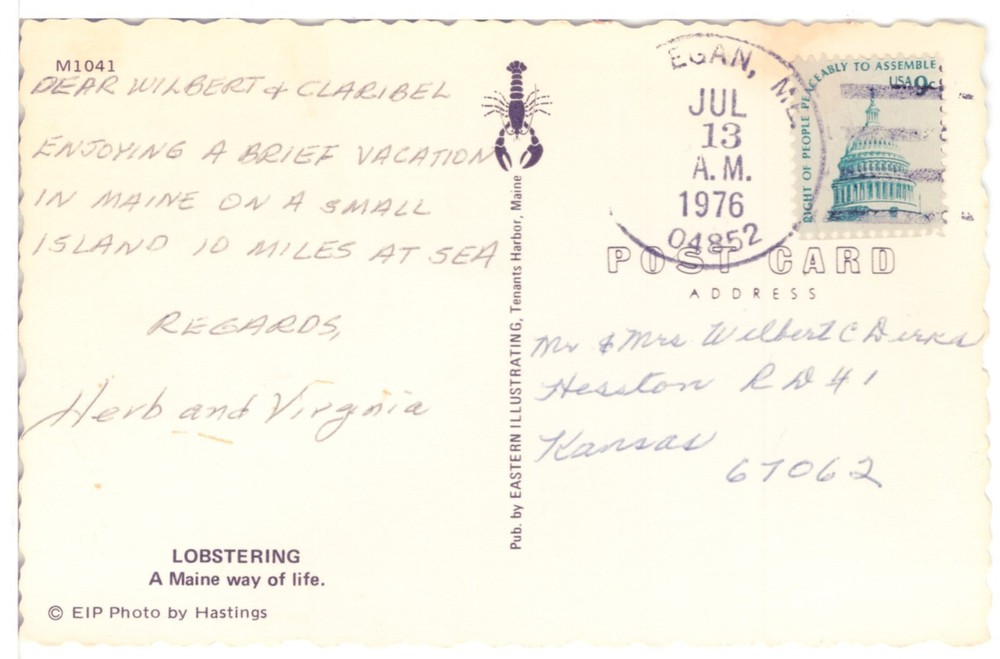 M1041
DEAR WILBERT & CLARIBEL
ENJOYING A BRIEF VACATION
IN MAINE ON A SMALL
ISLAND 10 MILES AT SEA
REGARDS,
Herb and Virginia
LOBSTERING
A Maine way of life.
© EIP Photo by Hastings
Pub. by EASTERN ILLUSTRATING, Tenants Harbor, Maine
EGAN, ME.
JUL
13
A.M.
1976
04852
RIGHT OF PEOPLE PEACEABLY TO ASSEMBLE
USA 9c
POST CARD
ADDRESS
Mr & Mrs Wilbert C Dirks
Hesston R D # 1
Kansas
67062